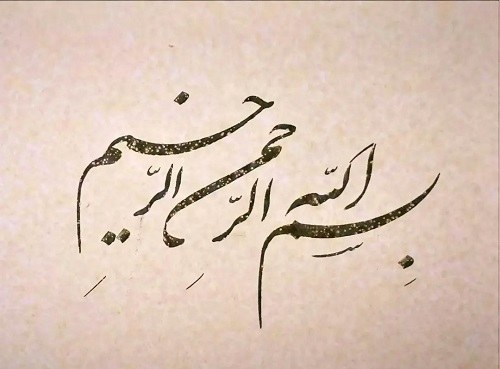 بِسمِ اللّه الرّحمنِ الرّحیمِ